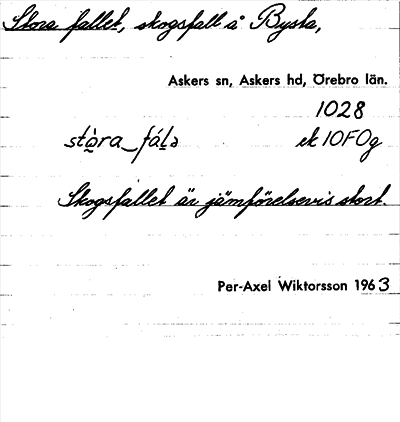 Stora fallet, skogsfall å Bysta,
Askers sn, Askers hd, Örebro län.
1028
stò̤ra‿fáḷə ek 10F0g
Skogsfallet är jämförelsevis stort.
Per-Axel Wiktorsson 1963